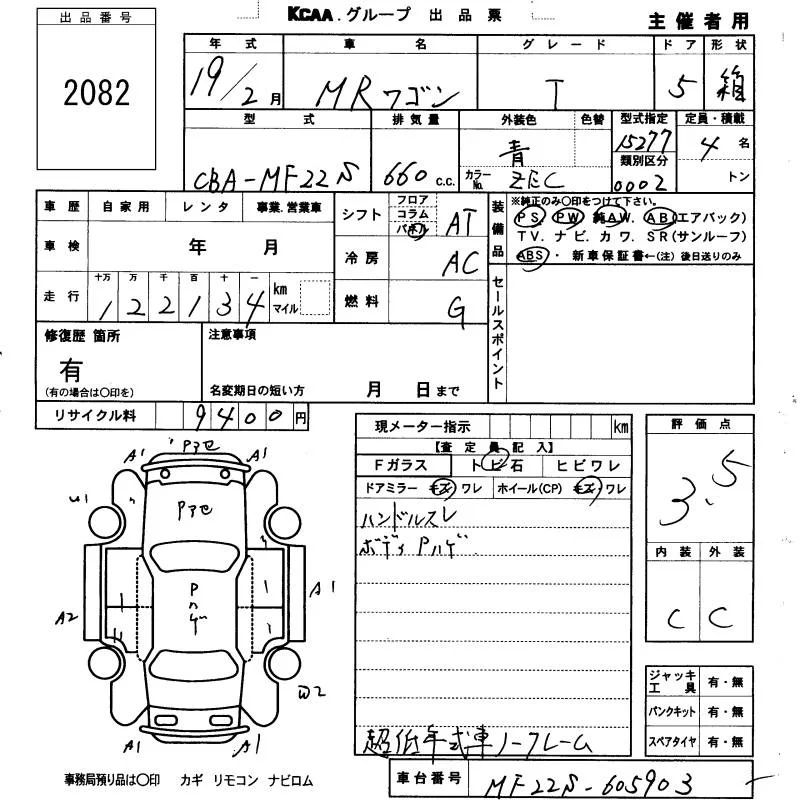 出品番号
2082
KCAA.グループ 出品票
主催者用
年式 車名 グレード ドア 形状
19/2月 MRワゴン T 5 箱
型式 排気量 外装色 色替 型式指定 定員・積載
CBA-MF22S 660 C.C. 青 15277 4名
カラーNo. ZEC 類別区分 0002 トン
車歴 自家用 レンタ 事業.営業車
シフト フロア コラム パネル AT
装備品
※純正のみ〇印をつけて下さい。
PS PW 純AW. AB(エアバック)
TV. ナビ. カワ. SR(サンルーフ)
ABS・ 新車保証書←(注)後日送りのみ
車検 年 月
冷房 AC
走行 十万 万 千 百 十 一
122134 km マイル
燃料 G
セールスポイント
修復歴 箇所
有
(有の場合は〇印を)
注意事項
名変期日の短い方 月 日まで
リサイクル料 9400円
現メーター指示 km
【査定員記入】
Fガラス トビ石 ヒビワレ
ドアミラー キズ・ワレ ホイール(CP) キズ・ワレ
ハンドルスレ
ボディPハゲ
超低年式車ノークレーム
車台番号 MF22S-605903
評価点
3.5
内装 外装
C C
ジャッキ工具 有・無
パンクキット 有・無
スペアタイヤ 有・無
A1 Pアセ A1
Pアセ
W1
Pハゲ
A2
A1
W2
A1 A1
事務局預り品は〇印 カギ リモコン ナビロム